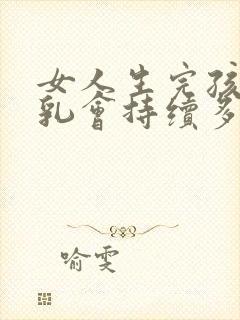 女人生完孩
乳會持續多
喻雯